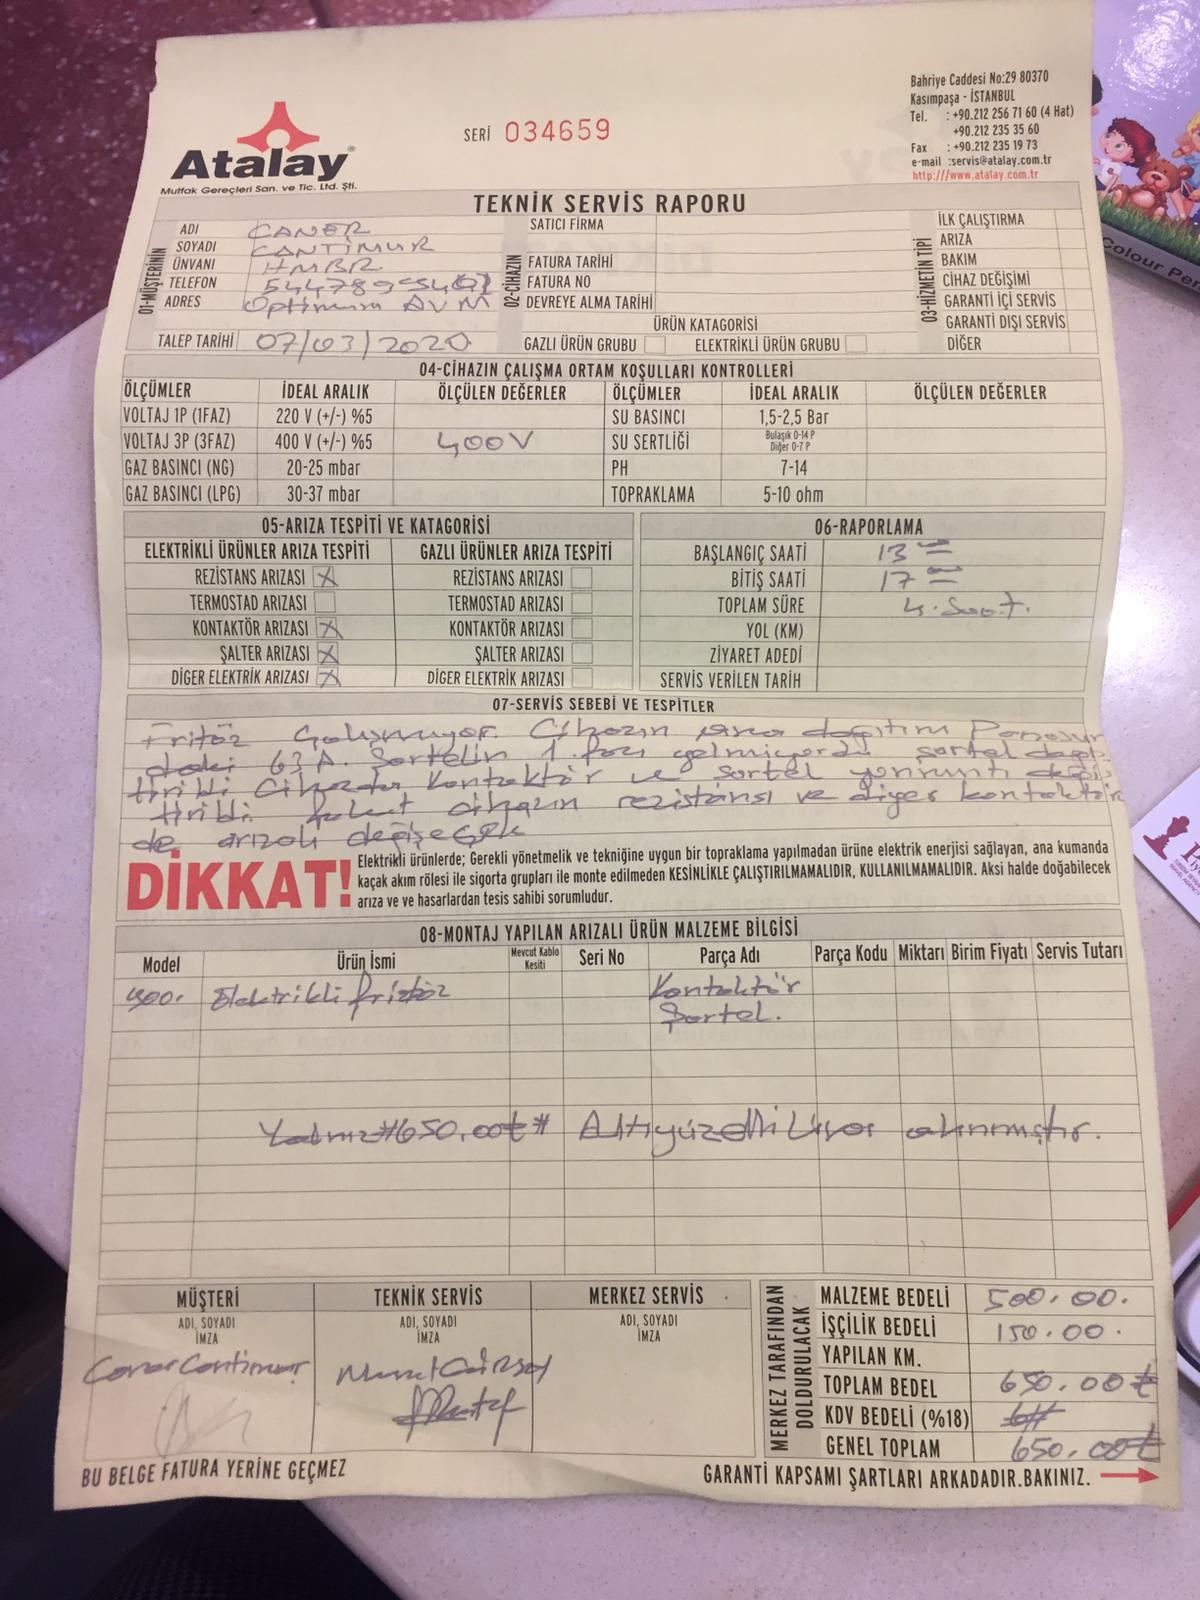 Atalay
Mutfak Gereçleri San. ve Tic. Ltd. Şti.
SERİ 034659
Bahriye Caddesi No:29 80370
Kasımpaşa - İSTANBUL
Tel. : +90.212 256 71 60 (4 Hat)
+90.212 235 35 60
Fax : +90.212 235 19 73
e-mail :servis@atalay.com.tr
http:///www.atalay.com.tr
TEKNİK SERVİS RAPORU
01-MÜŞTERİNİN
ADI CANER
SOYADI CANTİMUR
ÜNVANI HMBR
TELEFON
ADRES Optimum AVM
TALEP TARİHİ 07/03/2020
02-CİHAZIN
SATICI FİRMA
FATURA TARİHİ
FATURA NO
DEVREYE ALMA TARİHİ
ÜRÜN KATAGORİSİ
GAZLI ÜRÜN GRUBU ELEKTRİKLİ ÜRÜN GRUBU
03-HİZMETİN TİPİ
İLK ÇALIŞTIRMA
ARIZA
BAKIM
CİHAZ DEĞİŞİMİ
GARANTİ İÇİ SERVİS
GARANTİ DIŞI SERVİS
DİĞER
04-CİHAZIN ÇALIŞMA ORTAM KOŞULLARI KONTROLLERİ
ÖLÇÜMLER İDEAL ARALIK ÖLÇÜLEN DEĞERLER ÖLÇÜMLER İDEAL ARALIK ÖLÇÜLEN DEĞERLER
VOLTAJ 1P (1FAZ) 220 V (+/-) %5 SU BASINCI 1,5-2,5 Bar
VOLTAJ 3P (3FAZ) 400 V (+/-) %5 400V SU SERTLİĞİ Bulaşık 0-14 P
Diğer 0-7 P
GAZ BASINCI (NG) 20-25 mbar PH 7-14
GAZ BASINCI (LPG) 30-37 mbar TOPRAKLAMA 5-10 ohm
05-ARIZA TESPİTİ VE KATAGORİSİ
ELEKTRİKLİ ÜRÜNLER ARIZA TESPİTİ GAZLI ÜRÜNLER ARIZA TESPİTİ
REZİSTANS ARIZASI X REZİSTANS ARIZASI
TERMOSTAD ARIZASI TERMOSTAD ARIZASI
KONTAKTÖR ARIZASI X KONTAKTÖR ARIZASI
ŞALTER ARIZASI X ŞALTER ARIZASI
DİGER ELEKTRİK ARIZASI X DİGER ELEKTRİK ARIZASI
06-RAPORLAMA
BAŞLANGIÇ SAATİ 13
BİTİŞ SAATİ 17
TOPLAM SÜRE 4. Saat.
YOL (KM)
ZİYARET ADEDİ
SERVİS VERİLEN TARİH
07-SERVİS SEBEBİ VE TESPİTLER
Fritöz Çalışmıyor. Cihazın ana dağıtım Panosun
daki 63A. Şartelin 1. fazı gelmiyordu şartel değiş
tirildi Cihazda Kontaktör ve şartel yanmıştı değiş
tirildi. fakat cihazın rezistansı ve diger kontaktör
de arızalı değişecek
DİKKAT!
Elektrikli ürünlerde; Gerekli yönetmelik ve tekniğine uygun bir topraklama yapılmadan ürüne elektrik enerjisi sağlayan, ana kumanda
kaçak akım rölesi ile sigorta grupları ile monte edilmeden KESİNLİKLE ÇALIŞTIRILMAMALIDIR, KULLANILMAMALIDIR. Aksi halde doğabilecek
arıza ve ve hasarlardan tesis sahibi sorumludur.
08-MONTAJ YAPILAN ARIZALI ÜRÜN MALZEME BİLGİSİ
Model Ürün İsmi Mevcut Kablo Kesiti Seri No Parça Adı Parça Kodu Miktarı Birim Fiyatı Servis Tutarı
900. Elektrikli fritöz Kontaktör
Şartel.
Yalnız #650.00₺# Altıyüzelli Lira alınmıştır.
MÜŞTERİ
ADI, SOYADI
İMZA
Caner Cantimur
TEKNİK SERVİS
ADI, SOYADI
İMZA
MERKEZ SERVİS
ADI, SOYADI
İMZA
MERKEZ TARAFINDAN
DOLDURULACAK
MALZEME BEDELİ 500.00.
İŞÇİLİK BEDELİ 150.00.
YAPILAN KM.
TOPLAM BEDEL 650.00₺
KDV BEDELİ (%18)
GENEL TOPLAM 650.00₺
BU BELGE FATURA YERİNE GEÇMEZ
GARANTİ KAPSAMI ŞARTLARI ARKADADIR.BAKINIZ.
Colour Pen